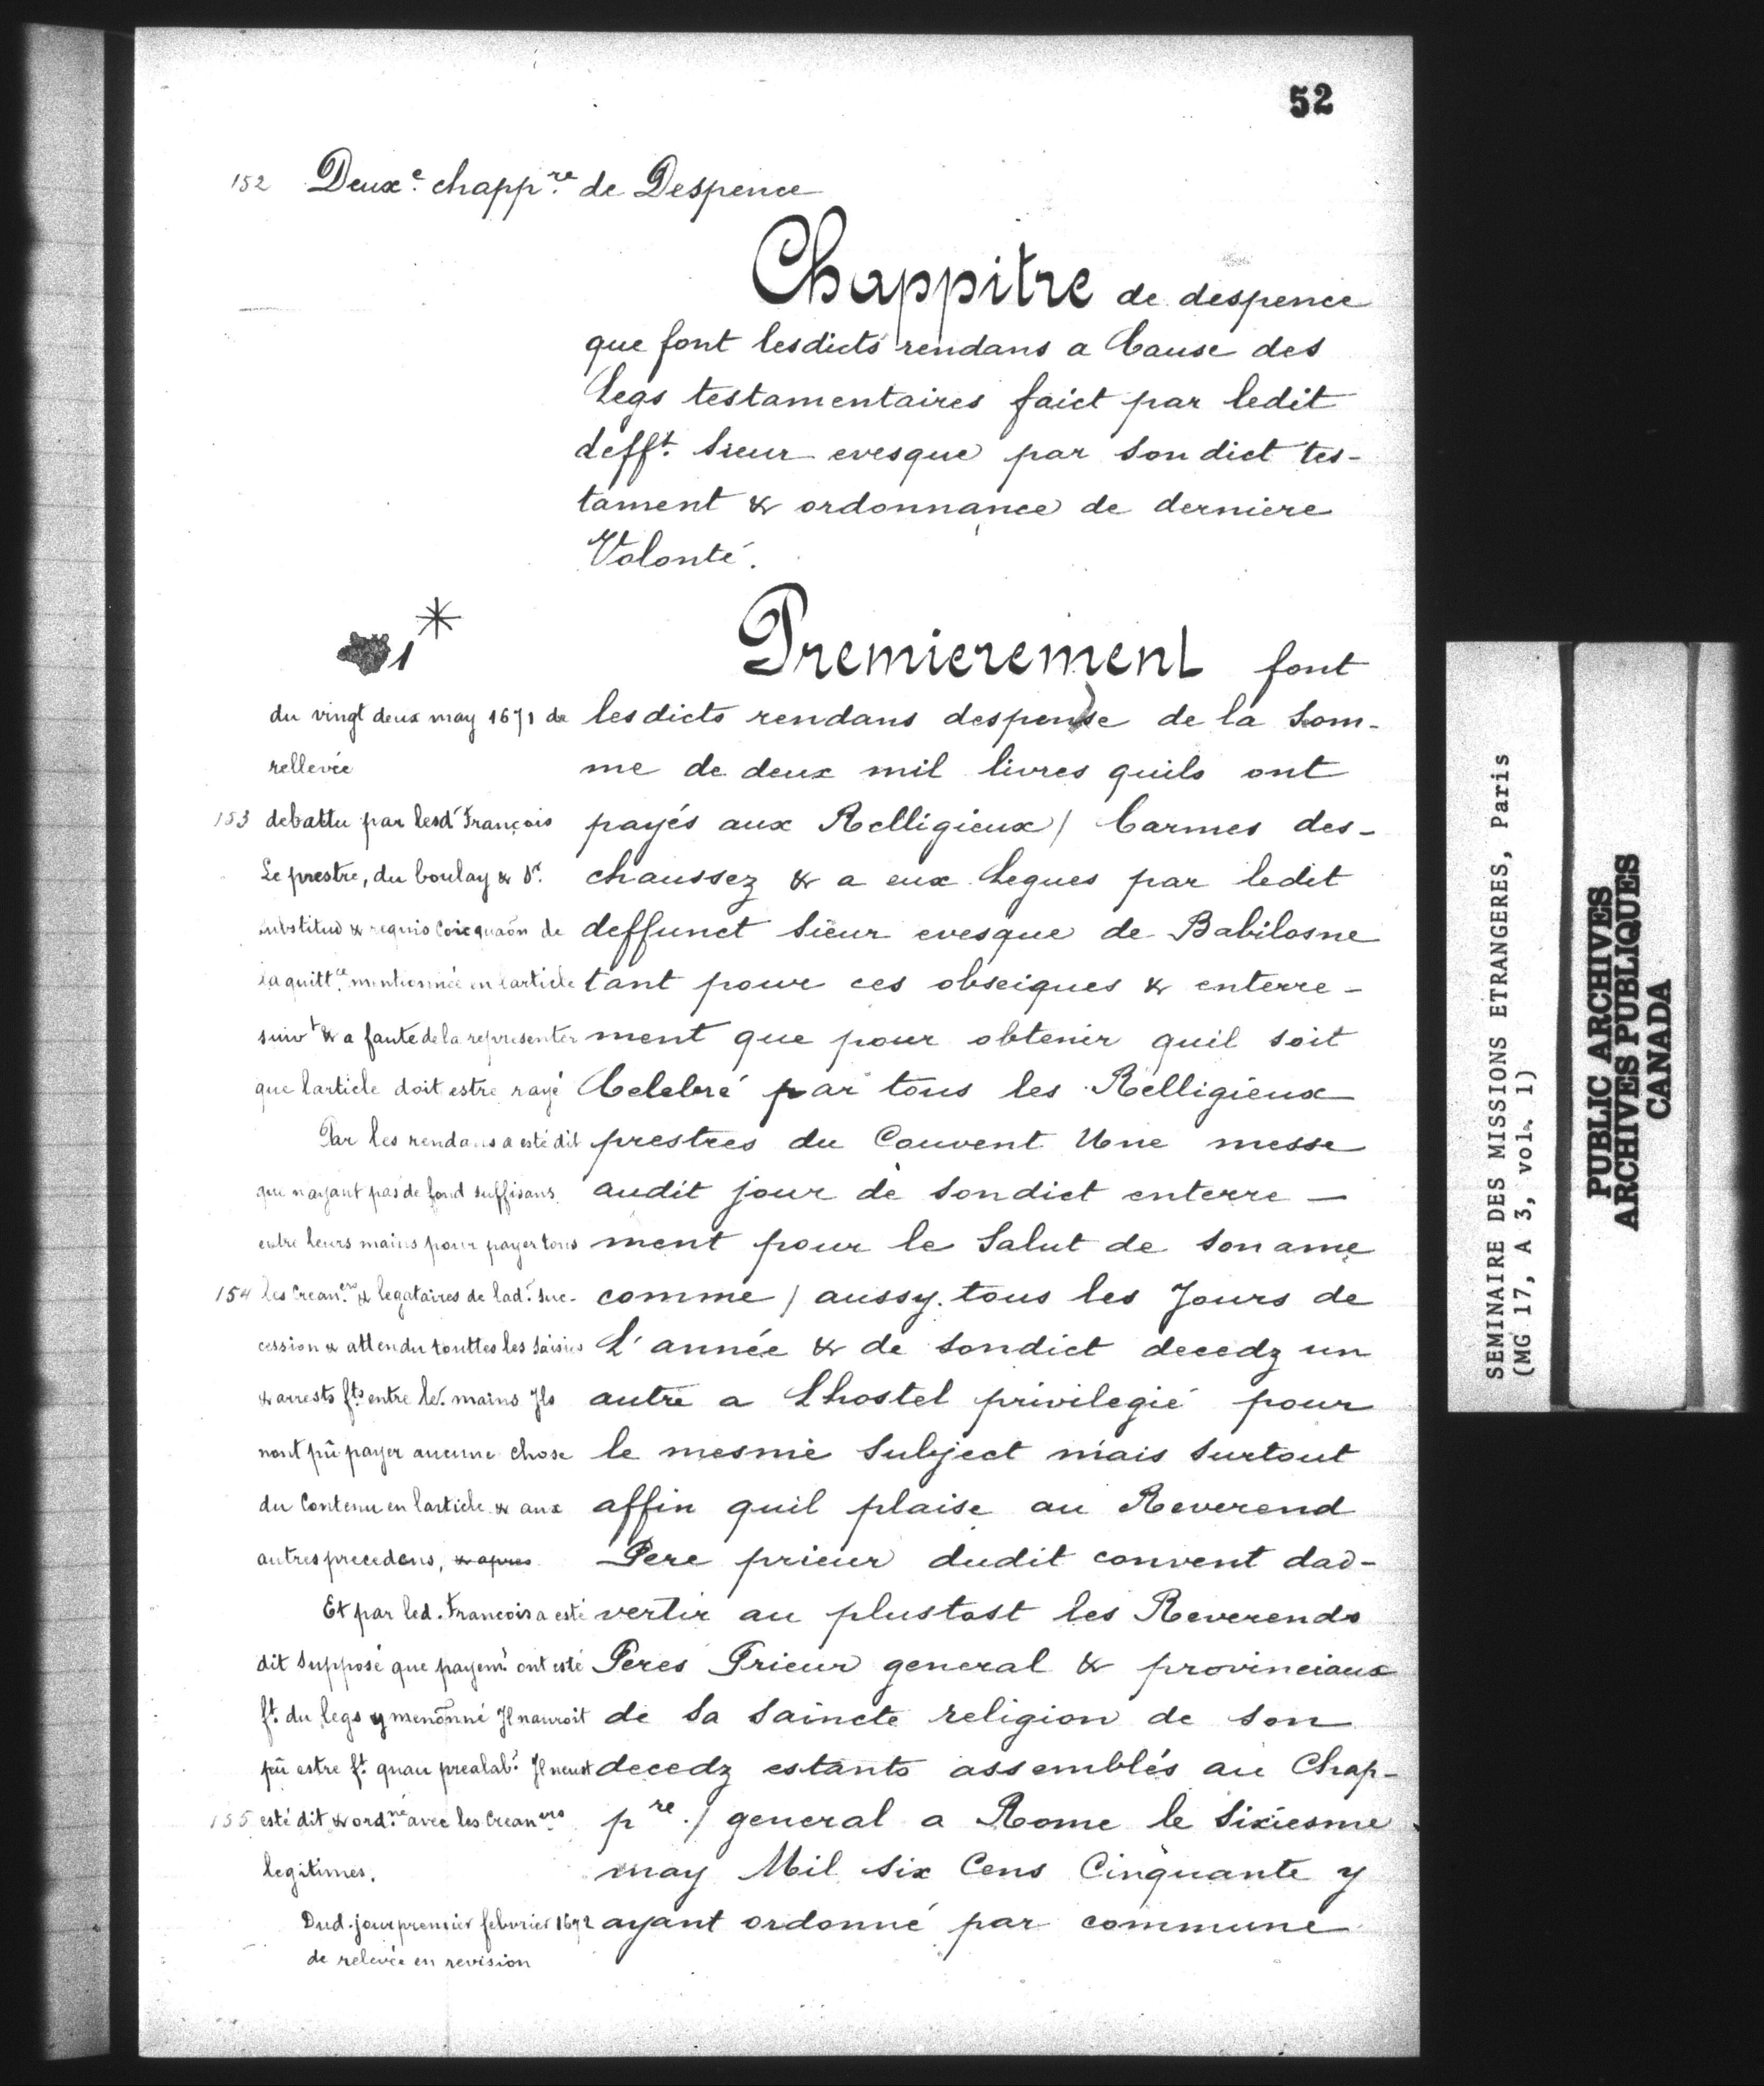 52
152 Deuxe. chappre. de Despence
Chappitre de despence
que font lesdicts rendans a Cause des
Legs testamentaires faict par ledit
defft. Sieur evesque par Son dict tes-
tament & ordonnance de derniere
Volonté.
1 *
du vingt deux may 1671 de
rellevée
153 debattu par lesd. François
Le prestre, du boulay & Sr.
substitud & requis Coicquaon de
la quittce. mentionnée en larticle
suivt & a faute de la representer
que larticle doit estre rayé
Par les rendans a esté dit
que nayant pas de fond suffisans
entre leurs mains pour payer tous
154 les Creaners. & legataires de lad. Suc-
cession & attendu touttes les Saisies
& arrests fts entre les. mains Jls
nont pû payer aucune chose
du Contenu en larticle & aux
autres precedens, & apres
Et par led. Francois a esté
dit Supposé que payemt. ont esté
ft. du legs y menõnné Jl nauroit
pû estre ft. quau prealabl. Jl neust
155 esté dit & ordnné avec les Creaners
legitimes.
Dud. jour premier febvrier 1672
de relevée en revision
Premierement font
lesdicts rendans despense de la Som-
me de deux mil livres quils ont
payés aux Relligieux / Carmes des-
chaussez & a eux Legues par ledit
deffunct Sieur evesque de Babilosne
tant pour ces obseigues & enterre-
ment que pour obtenir quil soit
Celebré par tous les Relligieux
prestres du Couvent Une messe
audit jour de Sondict enterre-
ment pour le Salut de Son ame
comme / aussy tous les Jours de
L'année & de Sondict decedz un
autre a Lhostel privilegié pour
le mesme Subject mais Surtout
affin quil plaise au Reverend
Pere prieur dudit convent dad-
vertir au plustost les Reverends
Peres Prieur general & provinciaux
de Sa Saincte religion de Son
decedz estants assemblés au Chap-
pre. / general a Rome le Sixiesme
may Mil Six Cens Cinquante y
ayant ordonné par commune
SEMINAIRE DES MISSIONS ETRANGERES, Paris
(MG 17, A 3, vol. 1)
PUBLIC ARCHIVES
ARCHIVES PUBLIQUES
CANADA